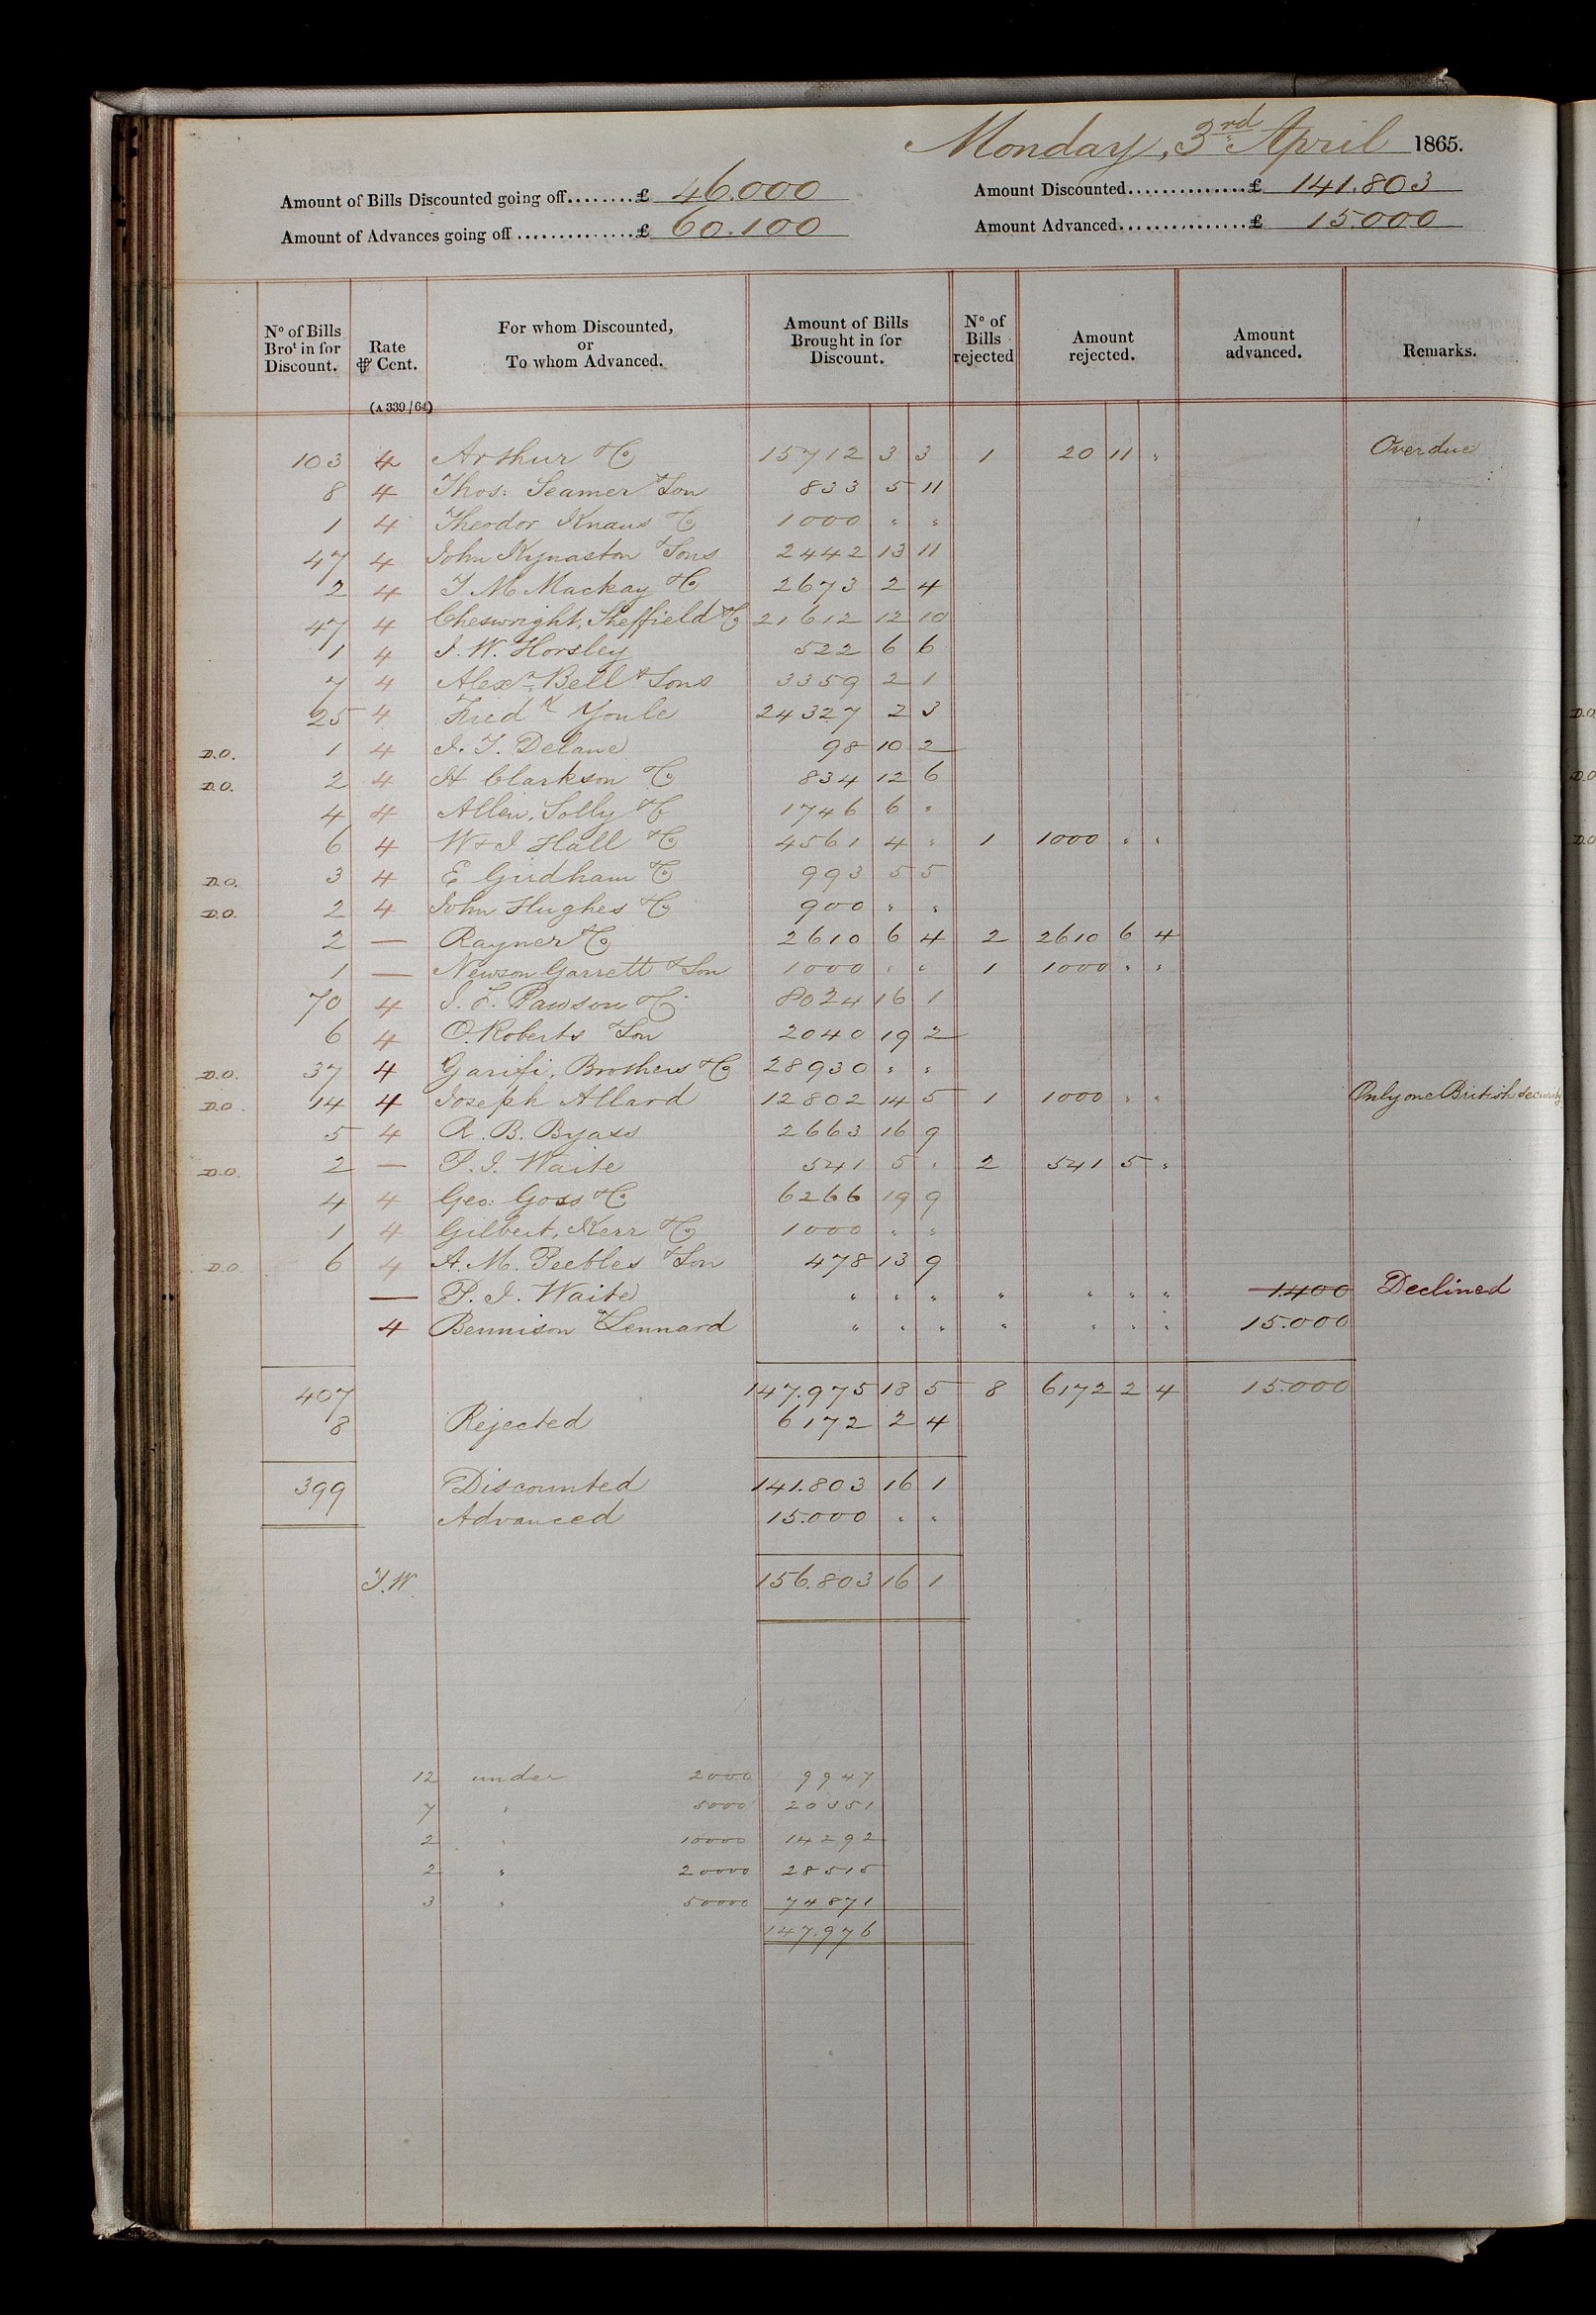 Monday, 3rd April 1865.
Amount of Bills Discounted going off........£ 46.000 Amount Discounted...............£ 141.803
Amount of Advances going off...............£ 60.100 Amount Advanced................£ 15.000
No of Bills Brot in for Discount. Rate ⅌ Cent. For whom Discounted, or To whom Advanced. Amount of Bills Brought in for Discount. No of Bills rejected Amount rejected. Amount advanced. Remarks.
(A 339/64)
103 4 Arthur & Co 15712 3 3 1 20 11 " Overdue
8 4 Thos: Seamer & Son 833 5 11
1 4 Theodor Knaus & Co 1000 " "
47 4 John Kynaston & Sons 2442 13 11
2 4 T M Mackay & Co 2673 2 4
47 4 Cheswright, Sheffield & Co 21612 12 10
1 4 J. W. Horsley 522 6 6
7 4 Alexr Bell & Sons 3359 2 1
25 4 Fredk Youle 24327 2 3
D.O. 1 4 J. T. Delane 98 10 2
D.O. 2 4 H Clarkson & Co 834 12 6
4 4 Allen, Solly & Co 1746 6 "
6 4 W & J Hall & Co 4561 4 " 1 1000 " "
D.O. 3 4 E Girdham & Co 993 5 5
D.O. 2 4 John Hughes & Co 900 " "
2 — Rayner & Co 2610 6 4 2 2610 6 4
1 — Newson Garrett & Son 1000 " " 1 1000 " "
70 4 J. F. Pawson & Co 8024 16 1
6 4 O. Roberts & Son 2040 19 2
D.O. 37 4 Garifi, Brothers & Co 28930 " "
D.O. 14 4 Joseph Allard 12802 14 5 1 1000 " " Only one British Security
5 4 R. B. Byass 2663 16 9
D.O. 2 — P. J. Waite 541 5 " 2 541 5 "
4 4 Geo: Goss & Co 6266 19 9
1 4 Gilbert, Kerr & Co 1000 " "
D.O. 6 4 A. M. Peebles & Son 478 13 9
— P. J. Waite " " " " " " " 1.400 Declined
4 Bennison & Lennard " " " " " " " 15.000
407 147.975 18 5 8 6172 2 4 15.000
8 Rejected 6172 2 4
399 Discounted 141.803 16 1
Advanced 15.000 " "
T.W. 156.803 16 1
12 under 2000 9947
7 " 5000 20351
2 " 10000 14292
2 " 20000 28515
3 " 50000 74871
147.976
D.O.
D.O
D.O